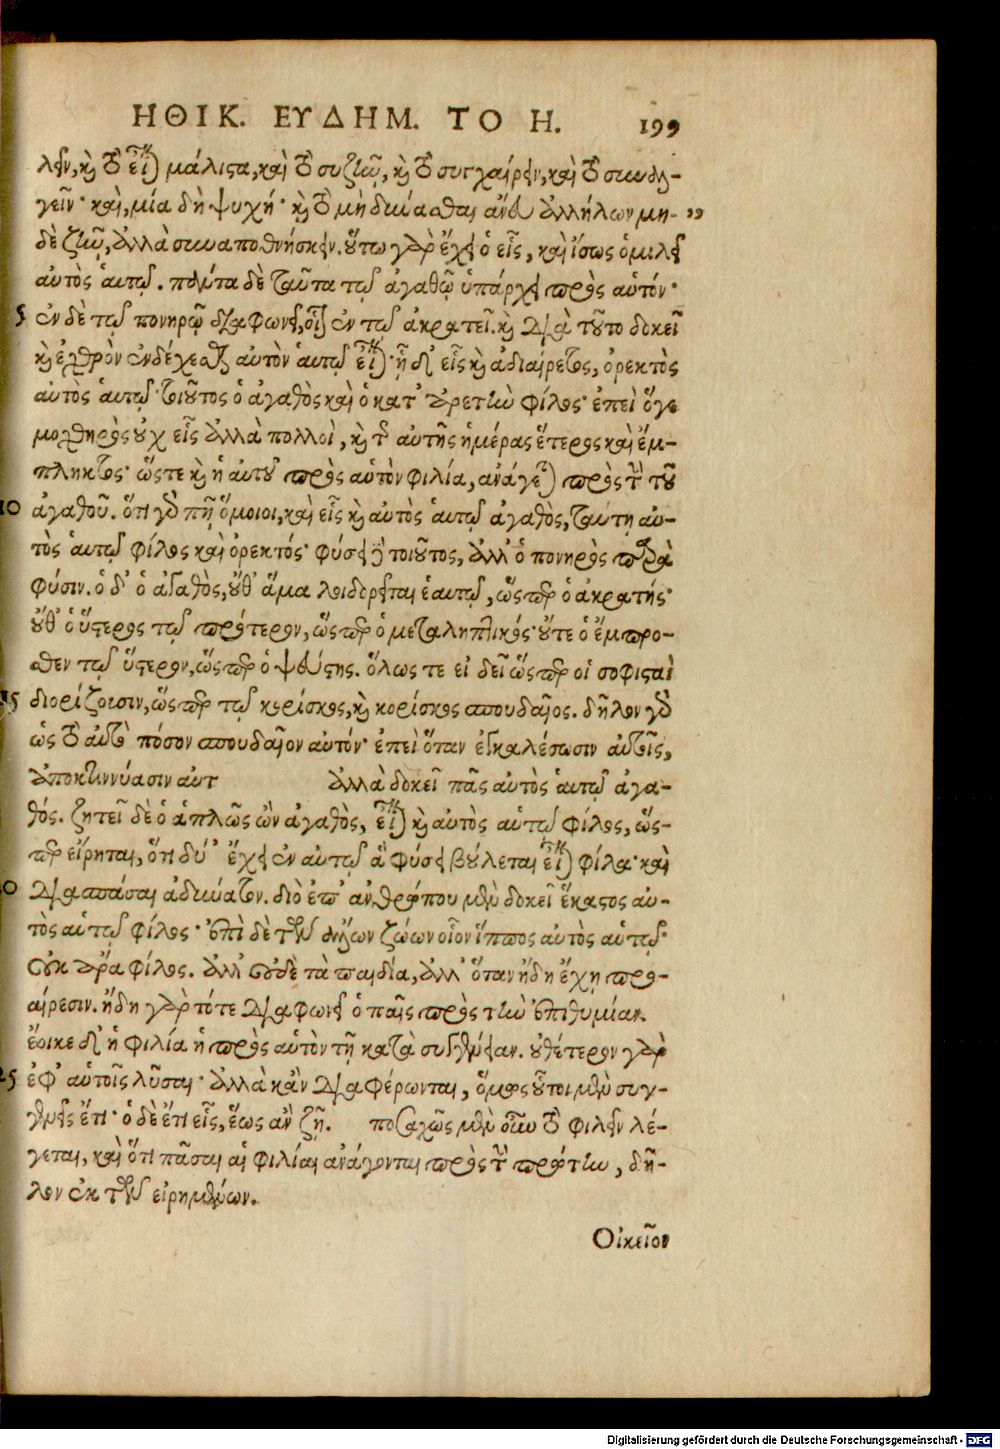 ΗΘΙΚ. ΕΥΔΗΜ. ΤΟ Η. 199
λειν, καὶ τὸ εἶναι μάλιστα, καὶ τὸ συζῆν, καὶ τὸ συγχαίρειν, καὶ τὸ συναλ-
γεῖν· καὶ, μία δὴ ψυχή· καὶ τὸ μὴ δύνασθαι ἄνευ ἀλλήλων μη- ”
δὲ ζῆν, ἀλλὰ συναποθνήσκειν. οὕτω γὰρ ἔχει ὁ εἷς, καὶ ἴσως ὁμιλεῖ
αὐτὸς αὑτῷ. πάντα δὲ ταῦτα τῷ ἀγαθῷ ὑπάρχει πρὸς αὑτόν·
5 ἐν δὲ τῷ πονηρῷ διαφωνεῖ, οἷον ἐν τῷ ἀκρατεῖ. καὶ διὰ τοῦτο δοκεῖ
καὶ ἐχθρὸν ἐνδέχεσθαι αὐτὸν αὑτῷ εἶναι· ᾗ δ' εἷς καὶ ἀδιαίρετος, ὀρεκτὸς
αὐτὸς αὑτῷ· τοιοῦτος ὁ ἀγαθὸς καὶ ὁ κατ' ἀρετὴν φίλος· ἐπεὶ ὅγε
μοχθηρὸς οὐχ εἷς ἀλλὰ πολλοὶ, καὶ τῆς αὐτῆς ἡμέρας ἕτερος καὶ ἔμ-
πληκτος· ὥστε καὶ ἡ αὐτοῦ πρὸς αὑτὸν φιλία, ἀνάγεται πρὸς τὴν τοῦ
10 ἀγαθοῦ. ὅτι γὰρ πῆ ὅμοιοι, καὶ εἷς καὶ αὐτὸς αὑτῷ ἀγαθὸς, ταύτη αὐ-
τὸς αὑτῷ φίλος καὶ ὀρεκτός· φύσει δὲ τοιοῦτος, ἀλλ' ὁ πονηρὸς παρὰ
φύσιν. ὁ δ' ὁ ἀγαθὸς, οὔθ' ἅμα λοιδορεῖται ἑαυτῷ, ὥσπερ ὁ ἀκρατής·
οὔθ' ὁ ὕστερος τῷ πρότερον, ὥσπερ ὁ μεταληπτικός· οὔτε ὁ ἔμπρο-
σθεν τῷ ὕστερον, ὥσπερ ὁ ψεύστης. ὅλως τε εἰ δεῖ ὥσπερ οἱ σοφισταὶ
15 διορίζουσιν, ὥσπερ τῷ κορίσκος, καὶ κορίσκος σπουδαῖος. δῆλον γὰρ
ὡς τὸ αὐτὸ πόσον σπουδαῖον αὐτόν· ἐπεὶ ὅταν ἐγκαλέσωσιν αὑτοῖς,
ἀποκτιννύασιν αὑτ ἀλλὰ δοκεῖ πᾶς αὐτὸς αὑτῷ ἀγα-
θός. ζητεῖ δὲ ὁ ἁπλῶς ὢν ἀγαθὸς, εἶναι καὶ αὐτὸς αὑτῷ φίλος, ὥσ-
περ εἴρηται, ὅτι δύ' ἔχει ἐν αὑτῷ ἃ φύσει βούλεται εἶναι φίλα· καὶ
20 διασπάσαι ἀδύνατον. διὸ ἐπ' ἀνθρώπου μὲν δοκεῖ ἕκαστος αὐ-
τὸς αὑτῷ φίλος· ἐπὶ δὲ τῶν ἄλλων ζώων οἷον ἵππος αὐτὸς αὑτῷ·
οὐκ ἄρα φίλος. ἀλλ' οὐδὲ τὰ παιδία, ἀλλ' ὅταν ἤδη ἔχη προ-
αίρεσιν. ἤδη γὰρ τότε διαφωνεῖ ὁ παῖς πρὸς τὴν ἐπιθυμίαν.
ἔοικε δ' ἡ φιλία ἡ πρὸς αὑτὸν τῇ κατὰ συγγένειαν. οὐθέτερον γὰρ
25 ἐφ' αὑτοῖς λῦσαι· ἀλλὰ κἂν διαφέρωνται, ὅμως οὗτοι μὲν συγ-
γενεῖς ἔτι· ὁ δὲ ἔτι εἷς, ἕως ἂν ζῇ. ποσαχῶς μὲν οὖν τὸ φιλεῖν λέ-
γεται, καὶ ὅτι πᾶσαι αἱ φιλίαι ἀνάγονται πρὸς τὴν πρώτην, δῆ-
λον ἐκ τῶν εἰρημένων.
Οἰκεῖον
Digitalisierung gefördert durch die Deutsche Forschungsgemeinschaft - DFG